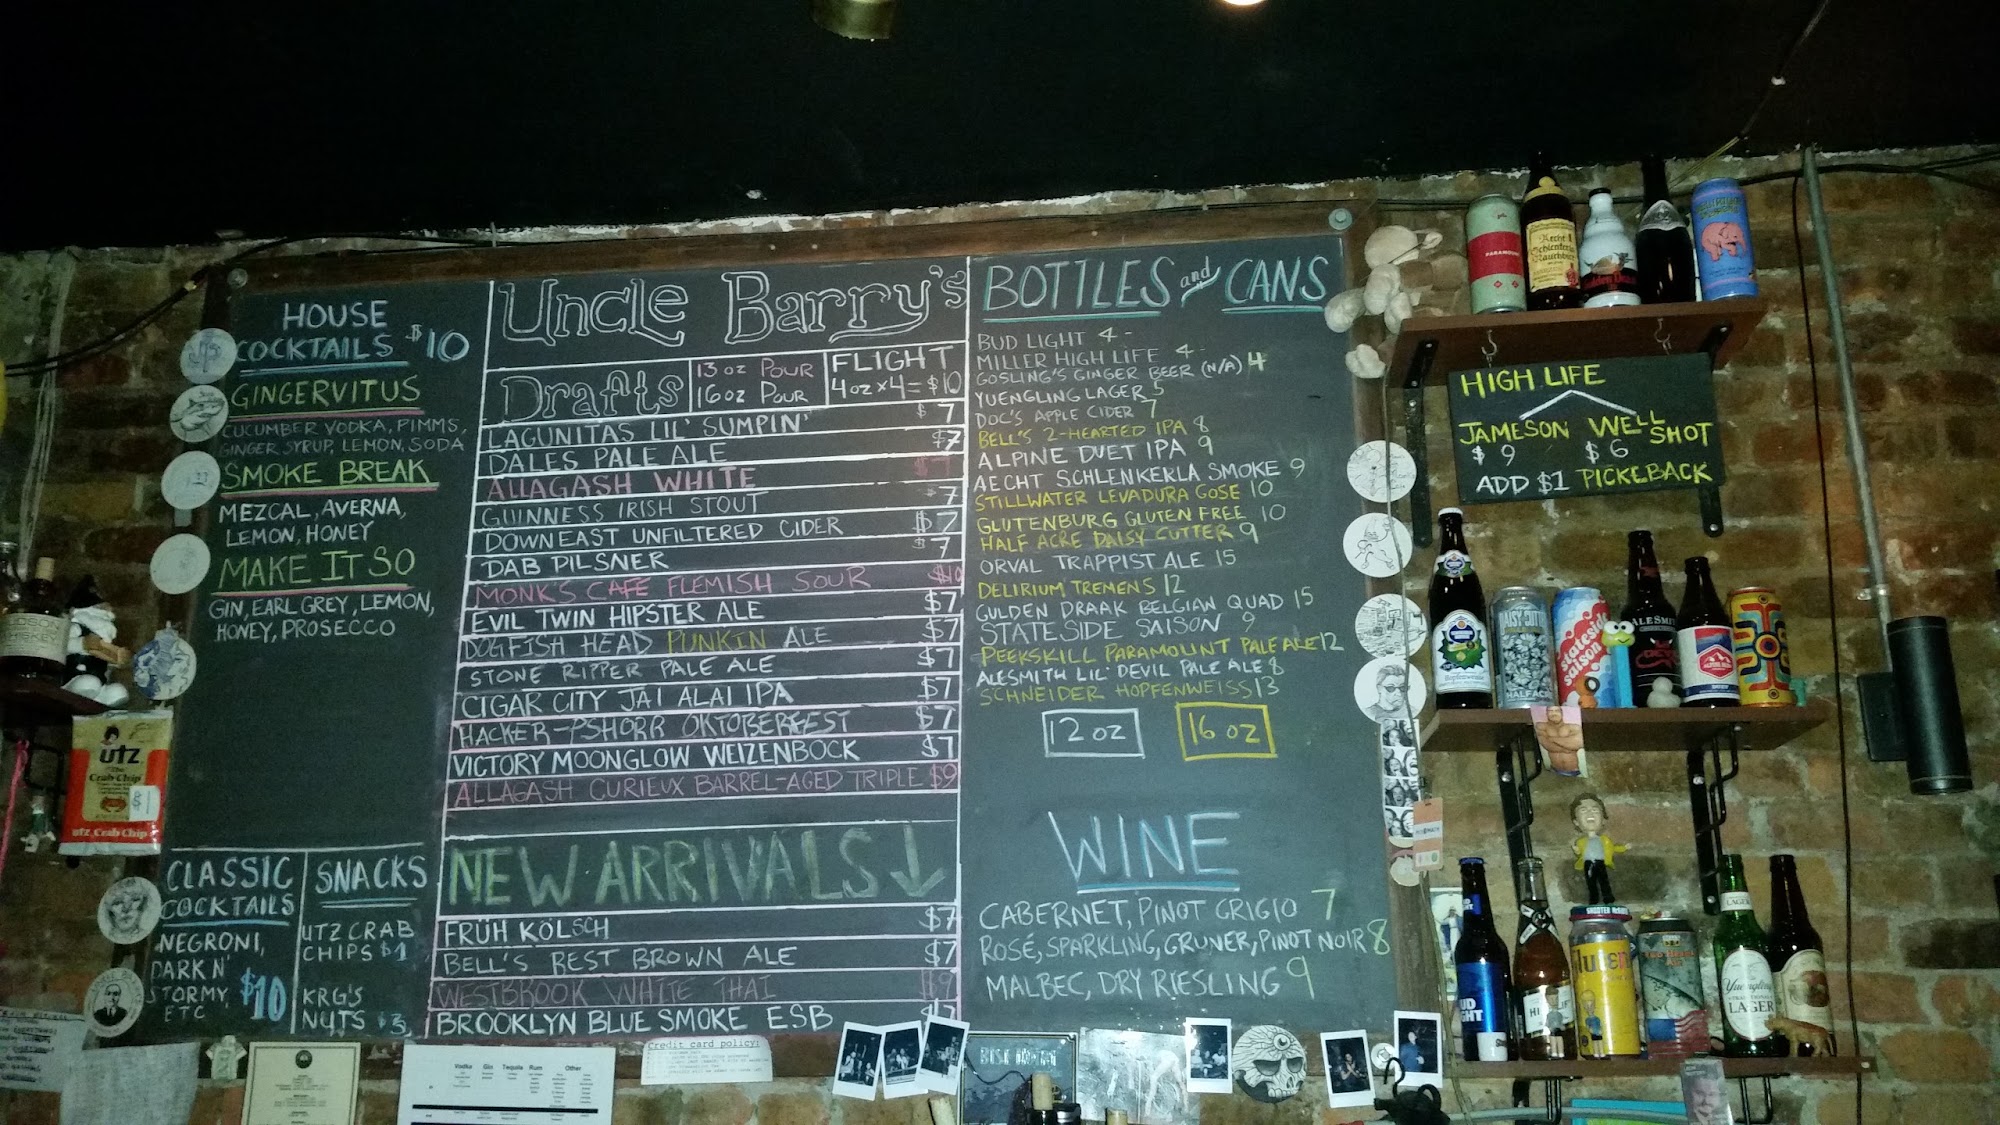 HOUSE
COCKTAILS $10
GINGERVITUS
CUCUMBER VODKA, PIMMS,
GINGER SYRUP, LEMON, SODA
SMOKE BREAK
MEZCAL, AVERNA,
LEMON, HONEY
MAKE IT SO
GIN, EARL GREY, LEMON,
HONEY, PROSECCO
CLASSIC
COCKTAILS
NEGRONI,
DARK N'
STORMY,
ETC
$10
SNACKS
UTZ CRAB
CHIPS $1
KRG'S
NUTS $3
Uncle Barry's
Drafts
13 oz POUR
16 oz POUR
FLIGHT
4 oz x 4 = $10
LAGUNITAS LIL' SUMPIN' $7
DALES PALE ALE $7
ALLAGASH WHITE $7
GUINNESS IRISH STOUT 7
DOWNEAST UNFILTERED CIDER $7
DAB PILSNER 7
MONK'S CAFE FLEMISH SOUR $10
EVIL TWIN HIPSTER ALE $7
DOGFISH HEAD PUNKIN ALE $7
STONE RIPPER PALE ALE $7
CIGAR CITY JAI ALAI IPA $7
HACKER-PSHORR OKTOBERFEST $7
VICTORY MOONGLOW WEIZENBOCK $7
ALLAGASH CURIEUX BARREL-AGED TRIPLE $9
NEW ARRIVALS ↓
FRÜH KÖLSCH $7
BELL'S BEST BROWN ALE $7
WESTBROOK WHITE THAI $9
BROOKLYN BLUE SMOKE ESB $7
BOTTLES and CANS
BUD LIGHT 4 -
MILLER HIGH LIFE 4 -
GOSLING'S GINGER BEER (N/A) 4
YUENGLING LAGER 5
DOC'S APPLE CIDER 7
BELL'S 2-HEARTED IPA 8
ALPINE DUET IPA 9
AECHT SCHLENKERLA SMOKE 9
STILLWATER LEVADURA GOSE 10
GLUTENBURG GLUTEN FREE 10
HALF ACRE DAISY CUTTER 9
ORVAL TRAPPIST ALE 15
DELIRIUM TREMENS 12
GULDEN DRAAK BELGIAN QUAD 15
STATESIDE SAISON 9
PEEKSKILL PARAMOUNT PALE ALE 12
ALESMITH LIL' DEVIL PALE ALE 8
SCHNEIDER HOPFENWEISS 13
12 oz
16 oz
WINE
CABERNET, PINOT GRIGIO 7
ROSÉ, SPARKLING, GRUNER, PINOT NOIR 8
MALBEC, DRY RIESLING 9
HIGH LIFE
JAMESON WELL SHOT
$9 $6
ADD $1 PICKEBACK
utz
The Crab Chip
$1
utz Crab Chip
Credit card policy:
Vodka Gin Tequila Rum Other
PARAMOUNT
Aecht
Schlenkerla
Rauchbier
DAISY CUTTER
HALF ACRE
stateside
saison
ALESMITH
BUD
LIGHT
Yuengling
LAGER